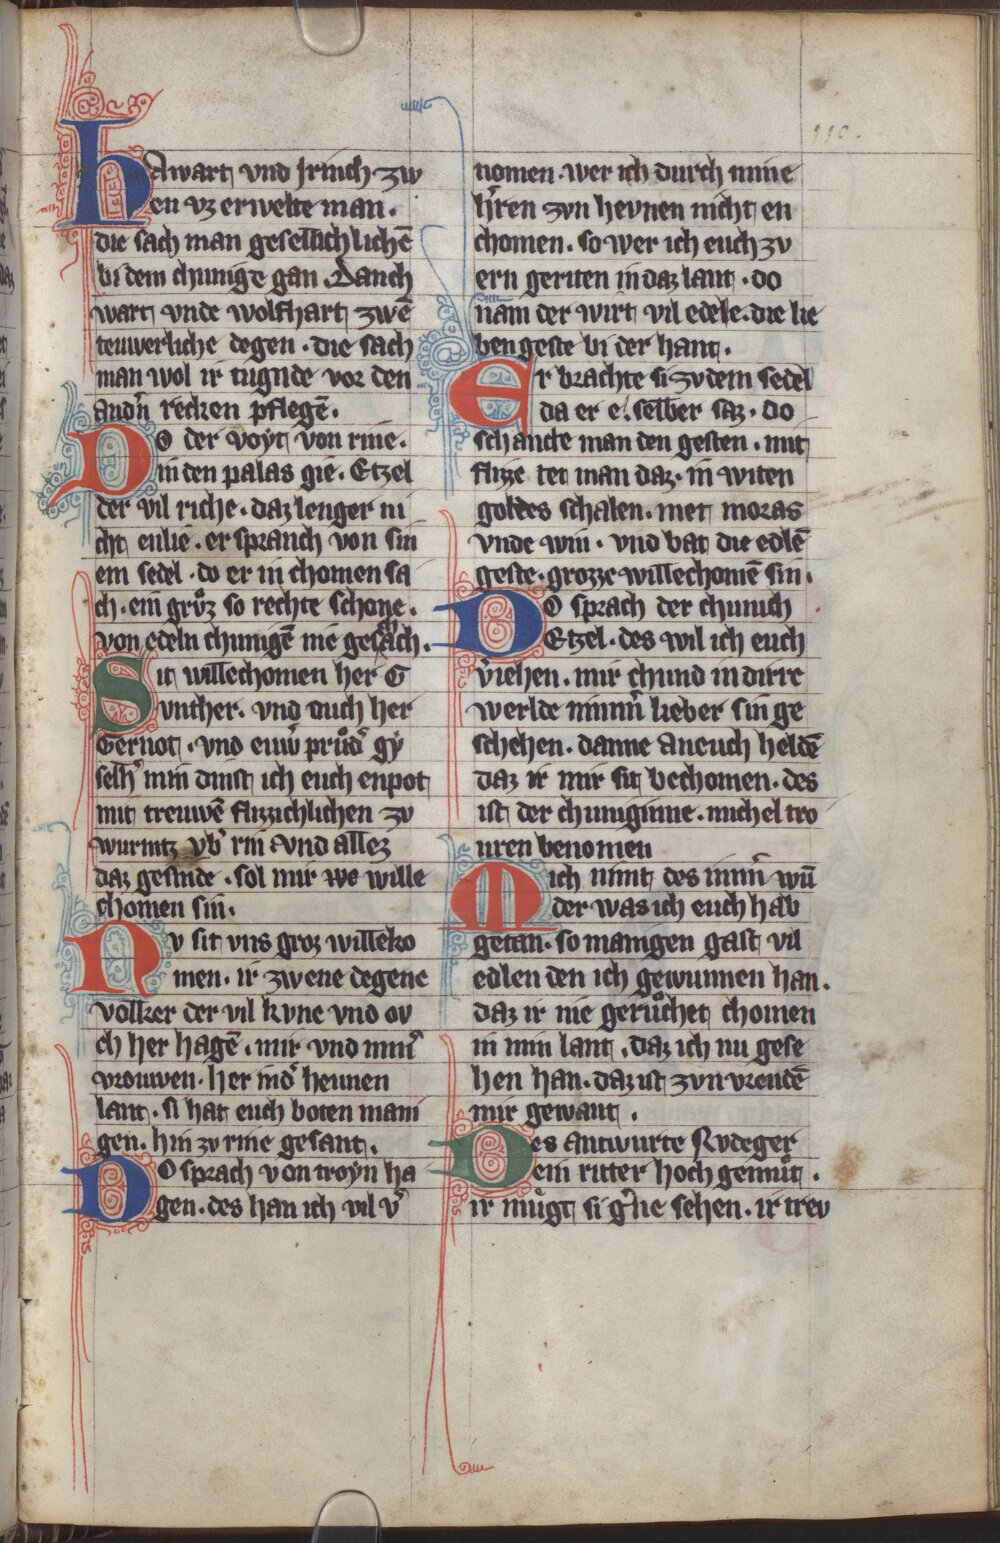 110.
hAwart vnd Jrinch zw
en vz erwelte man.
die sach man gesellichlichē
bi dem chunige gan. Danch
wart vnde wolfhart zwē
teuwerliche degen. die sach
man wol ir tugnde vor den
andn̄ recken pflegē.
DO der voyt von rine.
in den palas gie. Etzel
der vil riche. daz lenger ni
cht enlie. er spranch von sin
em sedel. do er in chomen sa
ch. ein grůz so rechte schone.
von edeln chunigē nie gesach.
Sit willechomen her G
vnther. vnd ouch her
Gernot. vnd euw̄ průdˀ gy
selhˀ min dinst ich euch enpot
mit treuwē flizzichlichen zv
wurmtz vbˀ rin vnd allez
daz gesinde. sol mir we wille
chomen sin.
Nv sit vns groz willeko
men. ir zwene degene
volker der vil kvne vnd ov
ch her hagē. mir vnd minˀ
vrouwen. her indˀ heunen
lant. si hat euch boten mani
gen. hin zv rine gesant.
DO sprach von troyn ha
gen. des han ich vil vˀ
nomen. wer ich durch mine
hˀren zvn hevnen nicht en
chomen. so wer ich euch zv
ern geriten in daz lant. do
nam der wirt vil edele. die lie
ben geste bi der hant.
Er brachte si zv dem sedel
da er e. selber saz. do
schancte man den gesten. mit
flizze tet man daz. in witen
goldes schalen. met moras
vnde win. vnd bat die edlē
geste. grozze willechomē sin.
DO sprach der chunich
Etzel. des wil ich euch
vˀiehen. mir chund in dirre
werlde nimmˀ lieber sin ge
schehen. danne an euch heldē
daz ir mir sit bechomen. des
ist der chuniginne. michel tro
uren benomen
Mich nimt des immˀ wū
der was ich euch hab
getan. so manigen gast vil
edlen den ich gewunnen han.
daz ir nie gerůchet chomen
in min lant. daz ich nu gese
hen han. daz ist zvn vreudē
mir gewant.
Des antwurte Rvdeger
ein ritter hoch gemůt.
ir můgt si gˀne sehen. ir trev